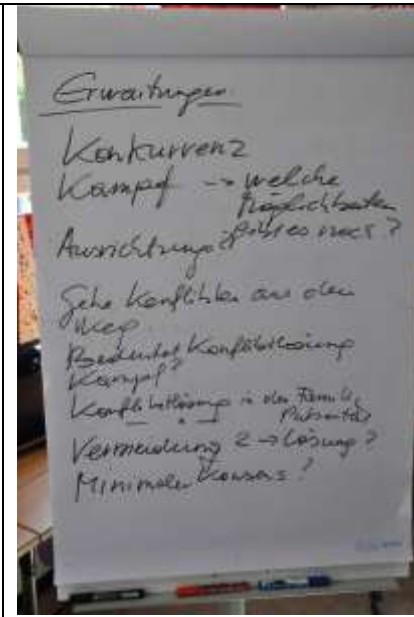 Erwartungen
Konkurrenz
Kampf -> welche
Möglichkeiten
gibt es noch?
Gehe Konflikten aus dem
Weg
Bedeutet Konfliktlösung
Kampf?
Konfliktlösung in der Familie
Vermeidung 2 -> Lösung?
Minimaler Konsens?